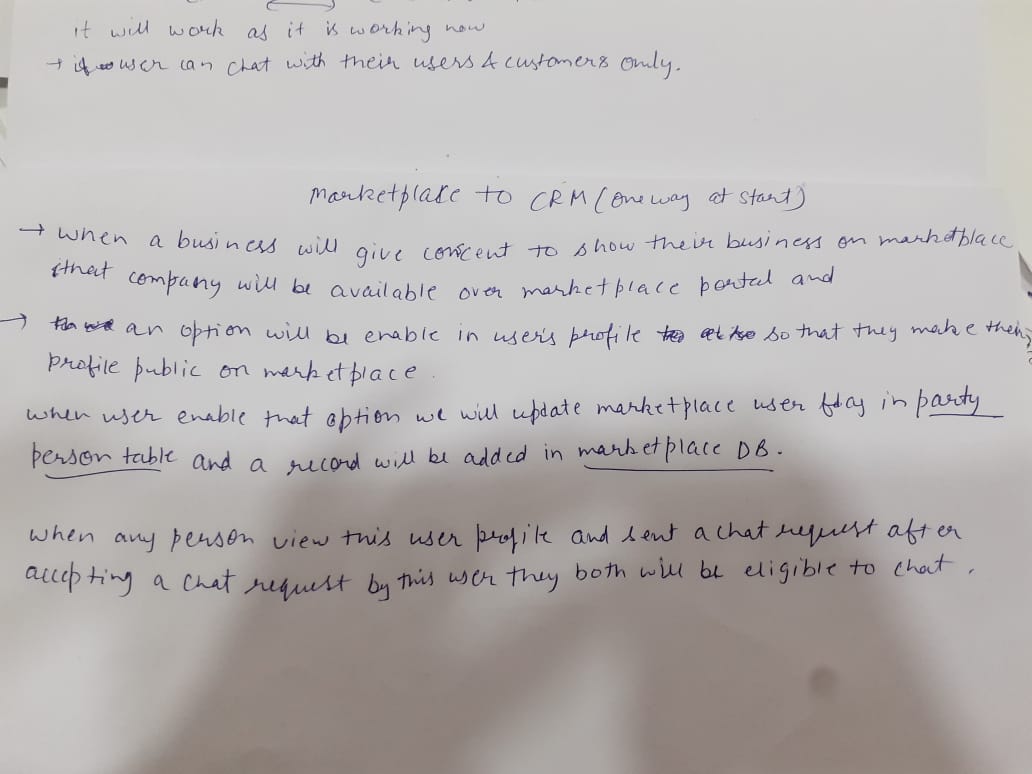 it will work as it is working now
→ user can chat with their users & customers only.
marketplace to CRM (one way at start)
→ when a business will give concent to show their business on marketplace
that company will be available over marketplace portal and
→ an option will be enable in user's profile so that they make their
profile public on marketplace.
when user enable that option we will update marketplace user flag in party
person table and a record will be added in marketplace DB.
when any person view this user profile and sent a chat request after
accepting a chat request by this user they both will be eligible to chat.